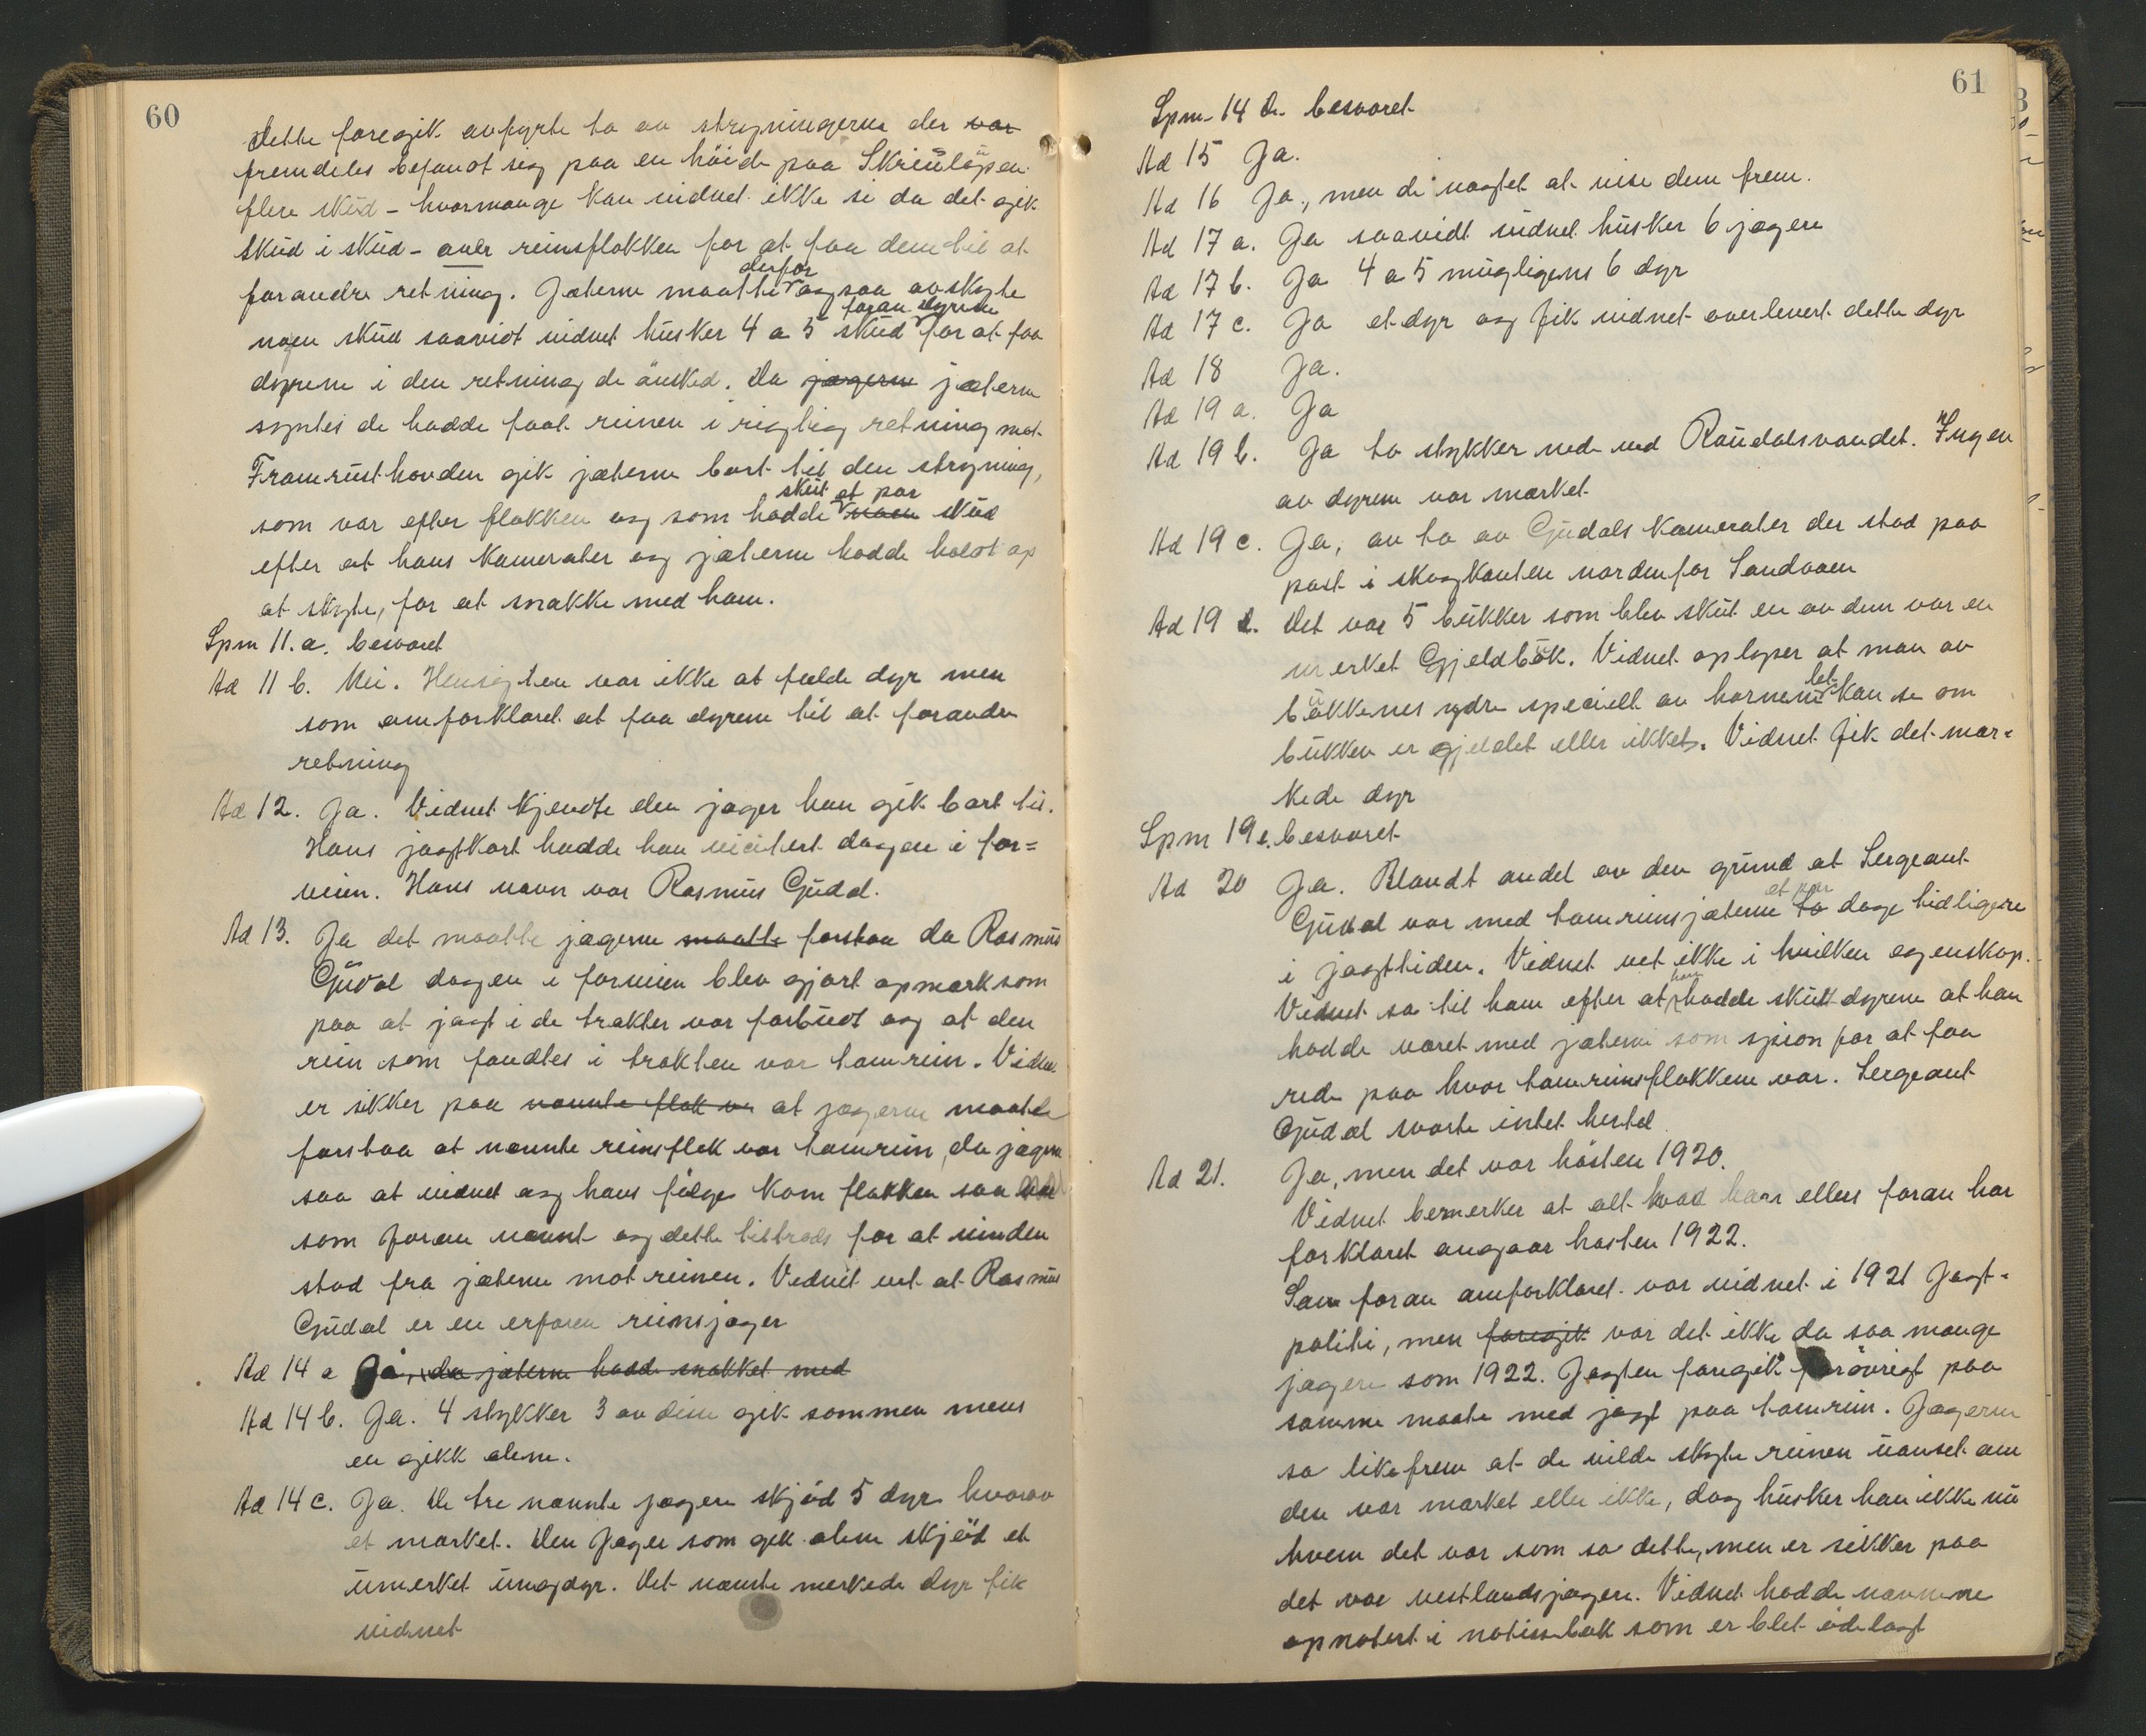 60
Dette foregik avfyrte to av strygningerne der var
fremdeles befandt sig paa en höide paa Skriulöpen
flere skud - hvormange kan vidnet ikke si da det gik
skud i skud - over reinsflokken for at faa dem til at
forandre retning. Jæterne maatte derfor ogsaa avskyte
nogen skud saavidt vidnet husker 4 a 5 skud foran dyrene for at faa
dyrene i den retning de önsket. Da jægerne jæterne
syntes de hadde faat reinen i rigtig retning mot
Framrusthovden gik jæterne bort til den strygning,
som var efter flokken og som hadde skut et par noen skud
efter at hans kamerater og jæterne hadde holdt op
at skyte, for at snakke med ham.
Spm 11.a. besvaret
Ad 11 b. Nei. Hensigten var ikke at fælde dyr men
som omforklaret at faa dyrene til at forandre
retning
Ad 12. Ja. Vidnet kjendte den jæger han gik bort til.
Hans jagtkort hadde han vicitert dagen i for=
veien. Hans navn var Rasmus Gudal.
Ad 13. Ja det maatte jægerne maatte forstaa da Rasmus
Gudal dagen i forveien blev gjort opmerksom
paa at jagt i de trakter var forbudt og at den
rein som fandtes i trakten var tamrein. Vidnet
er sikker paa nævnte flok var at jægerne maatte
forstaa at nævnte reinsflok var tamrein, da jægerne
saa at vidnet og hans fölge kom flokken saa
som foran nævnt og dette tiltrods for at vinden
stod fra jæterne mot reinen. Vidnet vet at Rasmus
Gudal er en erfaren reinsjæger
Ad 14 a Ja, da jæterne hadde snakket med
Ad 14 b. Ja. 4 stykker 3 av dem gik sammen mens
en gikk alene.
Ad 14 c. Ja. De tre nævnte jægere skjöd 5 dyr hvorav
et mærket. Den jæger som gik alene skjöd et
umerket ungdyr. Det nævnte merkede dyr fik
vidnet
61
Spm 14 d. besvaret
Ad 15 Ja.
Ad 16 Ja, men de nægtet at vise dem frem.
Ad 17 a. Ja saavidt vidnet husker 6 jægere
Ad 17 b. Ja 4 a 5 muligens 6 dyr
Ad 17 c. Ja et dyr og fik vidnet overlevert dette dyr
Ad 18 Ja.
Ad 19 a. Ja
Ad 19 b. Ja to stykker nede ved Raudalsvandet. Ingen
av dyrene var mærket
Ad 19 c. Ja, av to av Gudals kamerater der stod paa
post i skogkanten nordenfor Sandaaen
Ad 19 d. Det var 5 bukker som blev skut en av dem var en
merket Gjeldbuk. Vidnet oplyser at man av
bukkenes ydre specielt av hornene let kan se om
bukken er gjeldet eller ikke. Vidnet fik det mær=
kede dyr
Spm 19 e. besvaret
Ad 20 Ja. Blandt andet av den grund at Sergeant
Gudal var med tamreinsjæterne et par to dage tidligere
i jagttiden. Vidnet vet ikke i hvilken egenskap.
Vidnet sa til ham efter at han hadde skutt dyrene at han
hadde været med jæterne som spion for at faa
rede paa hvor tamreinsflokkene var. Sergeant
Gudal svarte intet hertil
Ad 21. Ja, men det var hösten 1920.
Vidnet bemerker at alt hvad han ellers foran har
forklaret angaar hösten 1922.
Som foran omforklaret var vidnet i 1921 Jagt-
politi, men foregik var det ikke da saa mange
jægere som 1922. Jagten foregik forövrigt paa
samme maate med jagt paa tamrein. Jægerne
sa likefrem at de vilde skyte reinen uanset om
den var mærket eller ikke, dog husker han ikke nu
hvem det var som sa dette, men er sikker paa
det var vestlandsjægere. Vidnet hadde navnene
opnotert i notisebok som er blet ödelagt